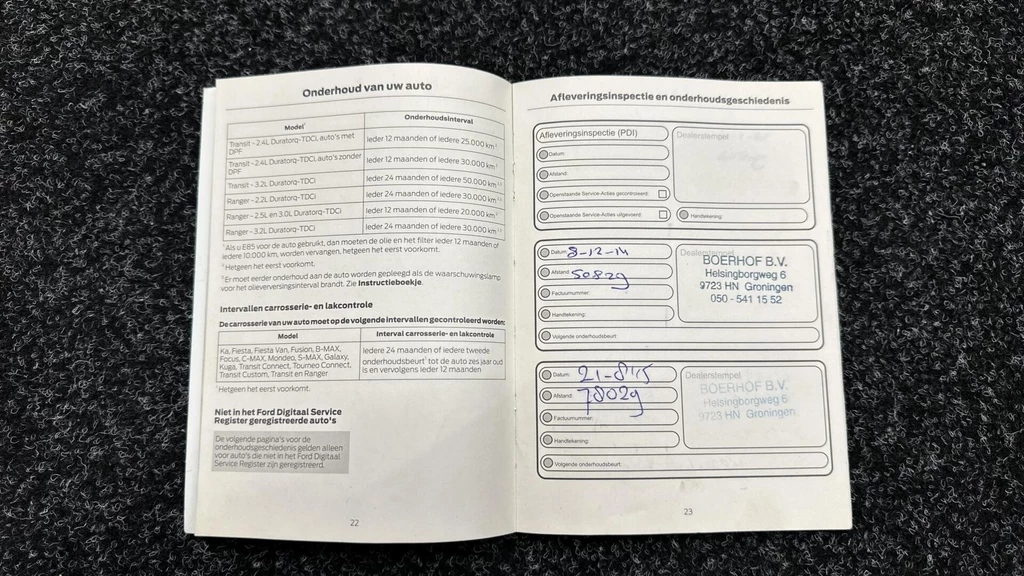 Onderhoud van uw auto
Model¹
Onderhoudsinterval
Transit - 2.4L Duratorq-TDCi, auto's met DPF
Ieder 12 maanden of iedere 25.000 km
Transit - 2.4L Duratorq-TDCi, auto's zonder DPF
Ieder 12 maanden of iedere 30.000 km
Transit - 3.2L Duratorq-TDCi
Ieder 24 maanden of iedere 50.000 km
Ranger - 2.2L Duratorq-TDCi
Ieder 24 maanden of iedere 30.000 km
Ranger - 2.5L en 3.0L Duratorq-TDCi
Ieder 12 maanden of iedere 20.000 km
Ranger - 3.2L Duratorq-TDCi
Ieder 24 maanden of iedere 30.000 km
Als u E85 voor de auto gebruikt, dan moeten de olie en het filter ieder 12 maanden of
iedere 10.000 km, worden vervangen, hetgeen het eerst voorkomt.
Hetgeen het eerst voorkomt.
Er moet eerder onderhoud aan de auto worden gepleegd als de waarschuwingslamp
voor het olieverversingsinterval brandt. Zie Instructieboekje.
Intervallen carrosserie- en lakcontrole
De carrosserie van uw auto moet op de volgende intervallen gecontroleerd worden:
Model
Interval carrosserie- en lakcontrole
Ka, Fiesta, Fiesta Van, Fusion, B-MAX,
Focus, C-MAX, Mondeo, S-MAX, Galaxy,
Kuga, Transit Connect, Tourneo Connect,
Transit Custom, Transit en Ranger
Iedere 24 maanden of iedere tweede
onderhoudsbeurt¹ tot de auto zes jaar oud
is en vervolgens ieder 12 maanden
Hetgeen het eerst voorkomt.
Niet in het Ford Digitaal Service
Register geregistreerde auto's
De volgende pagina's voor de
onderhoudsgeschiedenis gelden alleen
voor auto's die niet in het Ford Digitaal
Service Register zijn geregistreerd.
22
Afleveringsinspectie en onderhoudsgeschiedenis
Afleveringsinspectie (PDI)
Dealerstempel
Datum:
Afstand:
Openstaande Service-Acties gecontroleerd:
Openstaande Service-Acties uitgevoerd:
Handtekening:
Datum: 8-12-14
Afstand: 50829
Factuurnummer:
Handtekening:
Volgende onderhoudsbeurt:
Dealerstempel
BOERHOF B.V.
Helsingborgweg 6
9723 HN Groningen
050 - 541 15 52
Datum: 21-8-15
Afstand: 78029
Factuurnummer:
Handtekening:
Volgende onderhoudsbeurt:
Dealerstempel
BOERHOF B.V.
Helsingborgweg 6
9723 HN Groningen
23